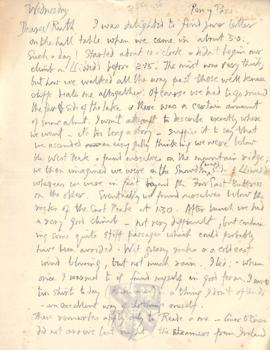 Wednesday
Pen y Pass
Dearest Ruth I was delighted to find your letter
on the hall table when we came in about 5.0.
Such a day! Started about 10 o'clock & didn't begin our
climb before 2.45. The mist was very thick,
but how we walked all the way past those well known
cliffs beats me altogether. Of course we had to go round
the far side of the lake & there was a certain amount
of snow about. I won't attempt to describe exactly where
we went - it's too long a story - suffice it to say that
we ascended an easy gully thinking we were below
the West Peak & found ourselves on the mountain ridge,
we then imagined we were on the Snowdon side of Lliwedd
whereas we were in fact beyond the Far East Buttress
on the other. Eventually we found ourselves below the
rocks of the East Peak at 1.30. After lunch we had
a very good climb - not very difficult, but contain-
ing some quite stiff passages which could probably
have been avoided. Wet greasy rocks & a cold east
wind blowing, but not much rain. I led. - when
once I warmed to it found myself in good form. I wore
two shirts to day a thing I don't often do
- an excellent way of
These remarks apply only to
did not and the steamers from Ireland